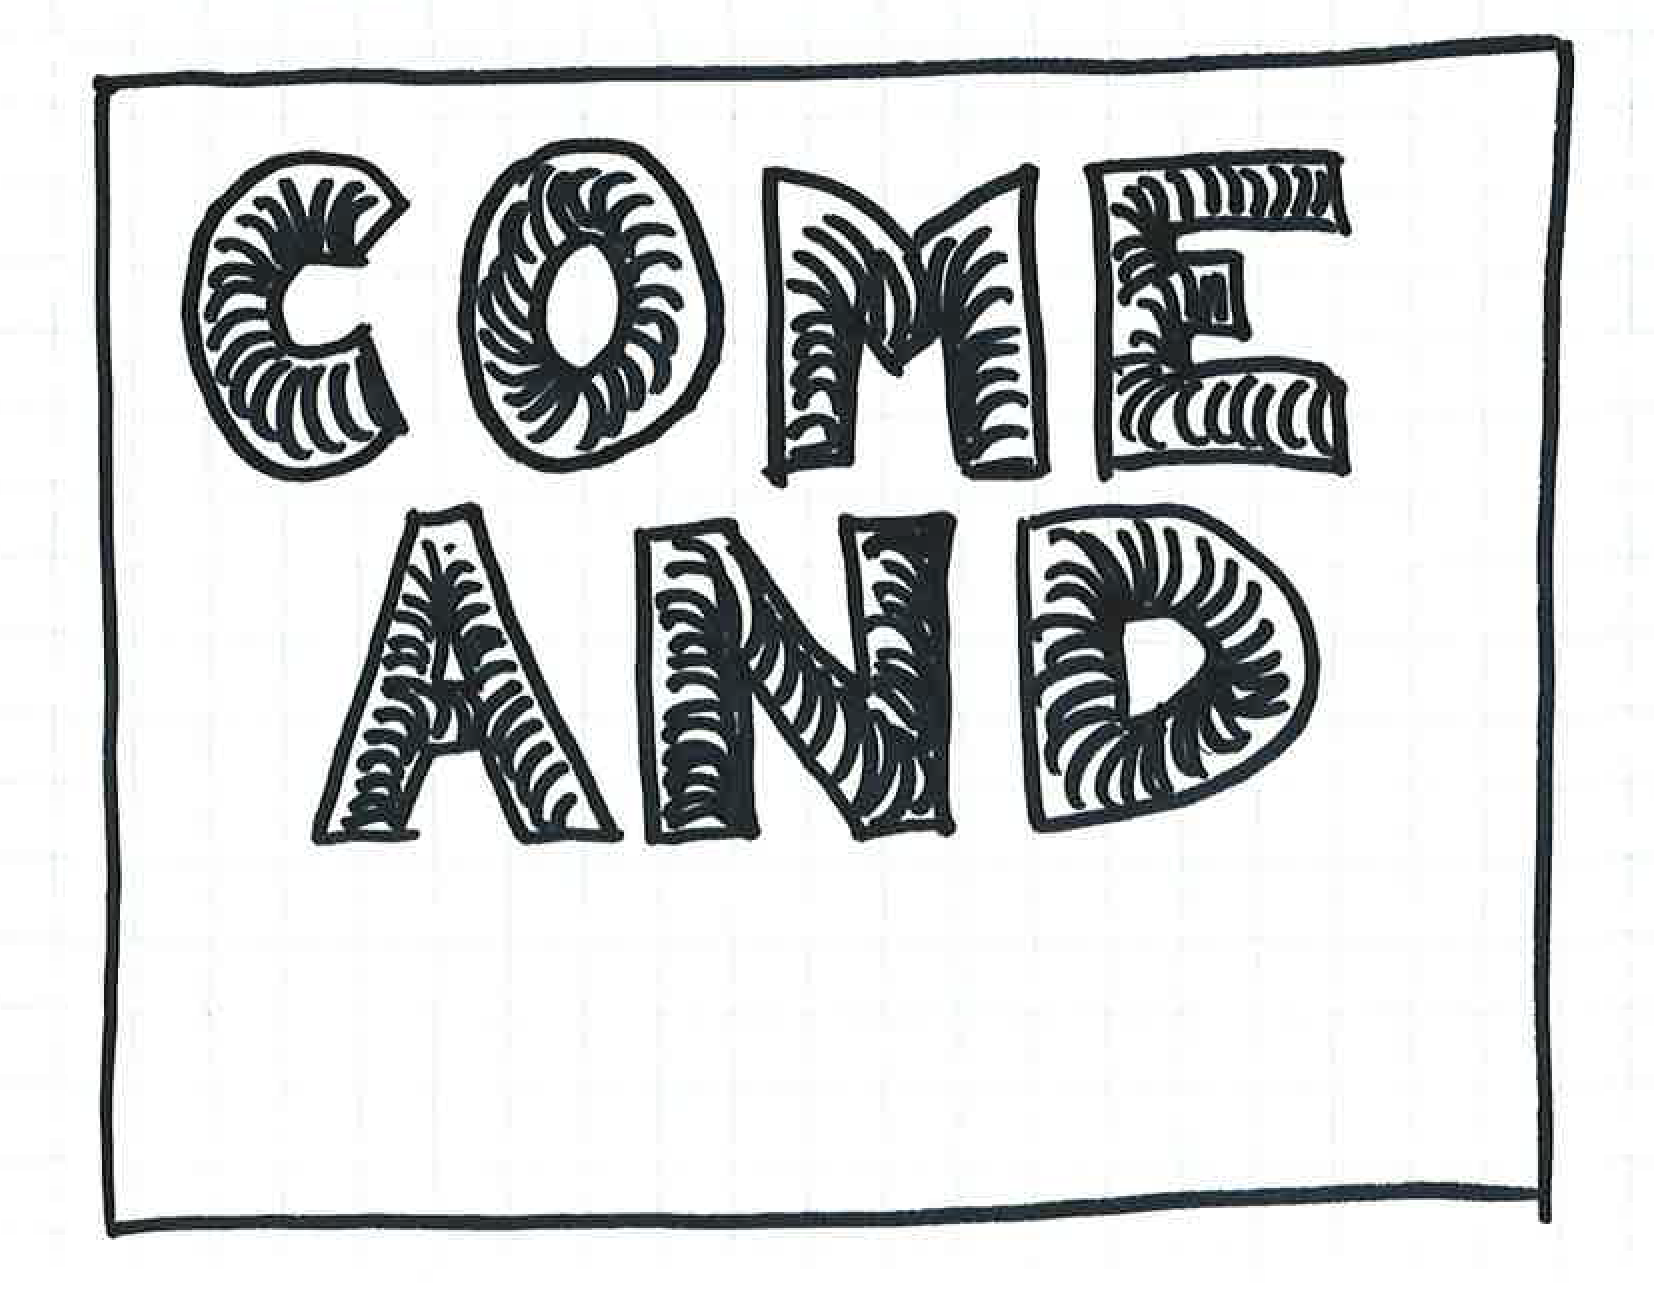 COME
AND